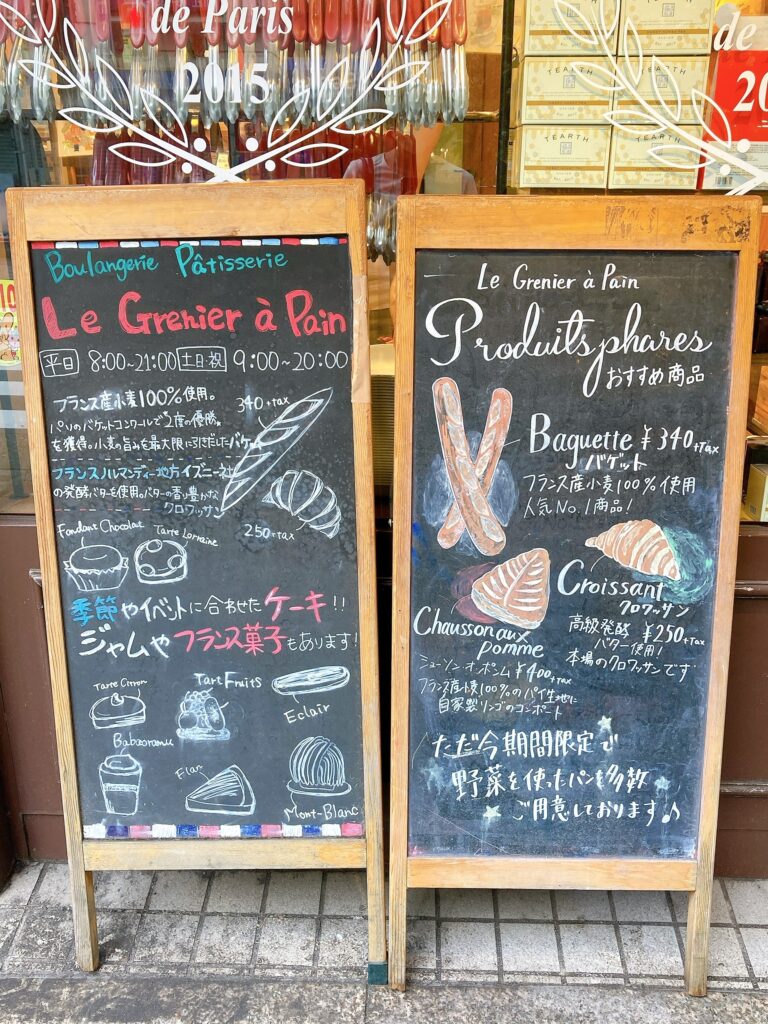 de Paris
2015
de
20
TEARTH
TEARTH
TEARTH
TEARTH
TEARTH
TEARTH
Boulangerie Pâtisserie
Le Grenier à Pain
平日 8:00~21:00 土日・祝 9:00~20:00
フランス産小麦100%使用。
340+tax
パリのバゲットコンクールで2度の優勝
を獲得。小麦の旨みを最大限に引きだしたバゲット
フランスノルマンディー地方イズニー社
の発酵バターを使用。バターの香り豊かな
クロワッサン
250+tax
Fondant Chocolat
Tarte Lorraine
季節やイベントに合わせたケーキ!!
ジャムやフランス菓子もあります!
Tarte Citron
Tart Fruits
Eclair
Babaoromu
Flan
Mont-Blanc
Le Grenier à Pain
Produits phares
おすすめ商品
Baguette ¥340+tax
バゲット
フランス産小麦100%使用
人気No.1商品!
Croissant
クロワッサン
高級発酵 ¥250+tax
バター使用!
本場のクロワッサンです
Chausson aux
pomme
ショーソン・オ・ポンム ¥400+tax
フランス産小麦100%のパイ生地に
自家製リンゴのコンポート
ただ今期間限定で
野菜を使ったパンを多数
ご用意しております♪